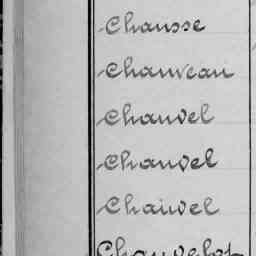 Chausse
Chauveau
Chauvel
Chauvel
Chauvel
Chauvelot